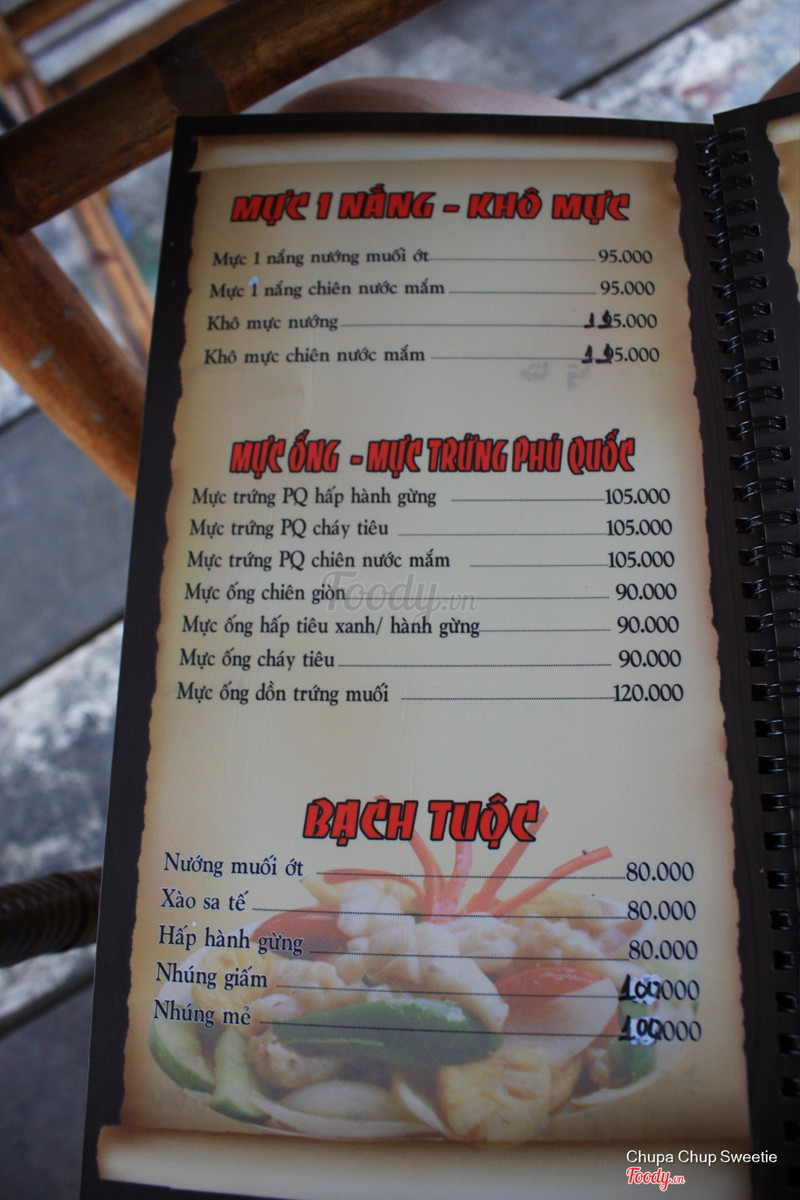 MỰC 1 NẮNG - KHÔ MỰC
Mực 1 nắng nướng muối ớt 95.000
Mực 1 nắng chiên nước mắm 95.000
Khô mực nướng 195.000
Khô mực chiên nước mắm 195.000
MỰC ỐNG - MỰC TRỨNG PHÚ QUỐC
Mực trứng PQ hấp hành gừng 105.000
Mực trứng PQ cháy tiêu 105.000
Mực trứng PQ chiên nước mắm 105.000
Mực ống chiên giòn 90.000
Foody.vn
Mực ống hấp tiêu xanh/ hành gừng 90.000
Mực ống cháy tiêu 90.000
Mực ống dồn trứng muối 120.000
BẠCH TUỘC
Nướng muối ớt 80.000
Xào sa tế 80.000
Hấp hành gừng 80.000
Nhúng giấm 100.000
Nhúng mẻ 100.000
Chupa Chup Sweetie
Foody.vn